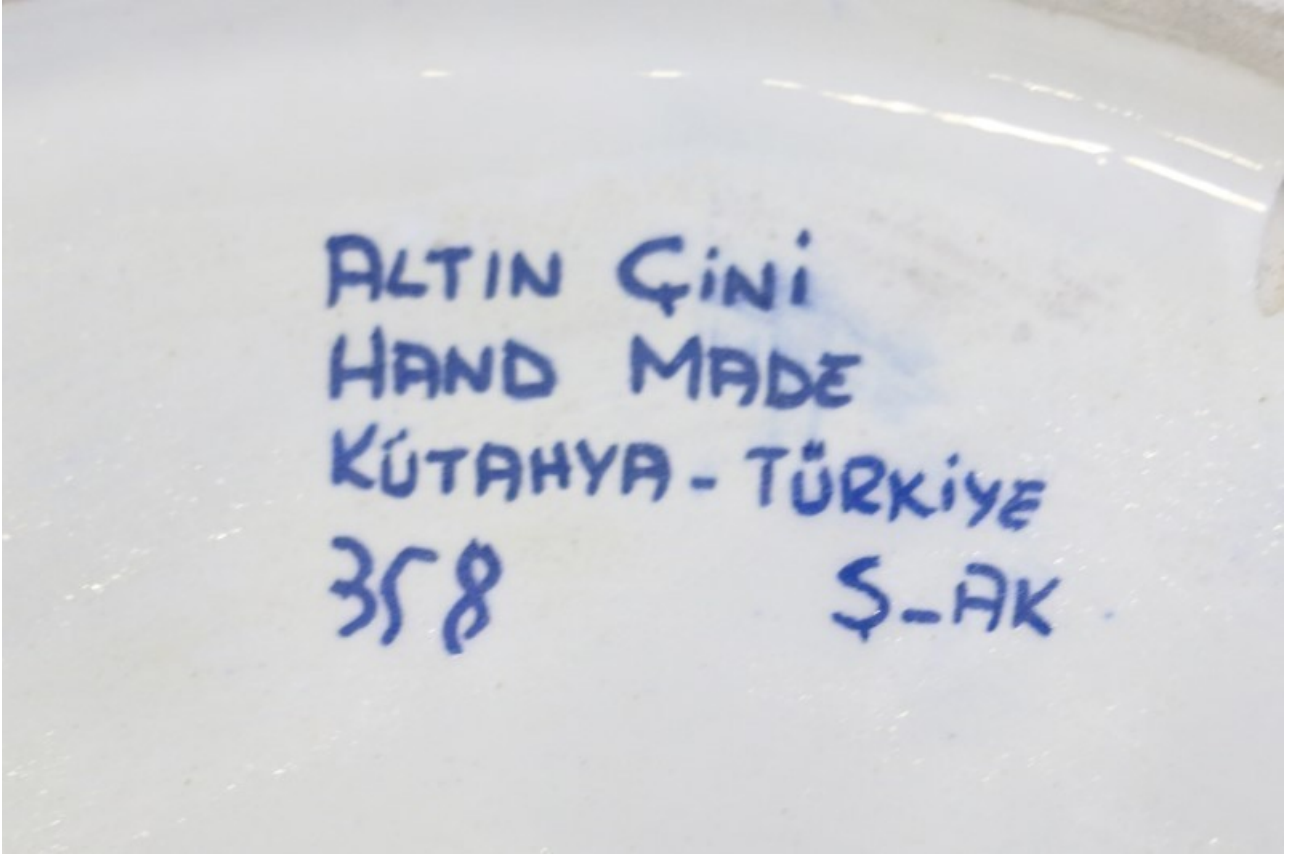 ALTIN ÇİNİ
HAND MADE
KÜTAHYA - TÜRKİYE
358 Ş-AK